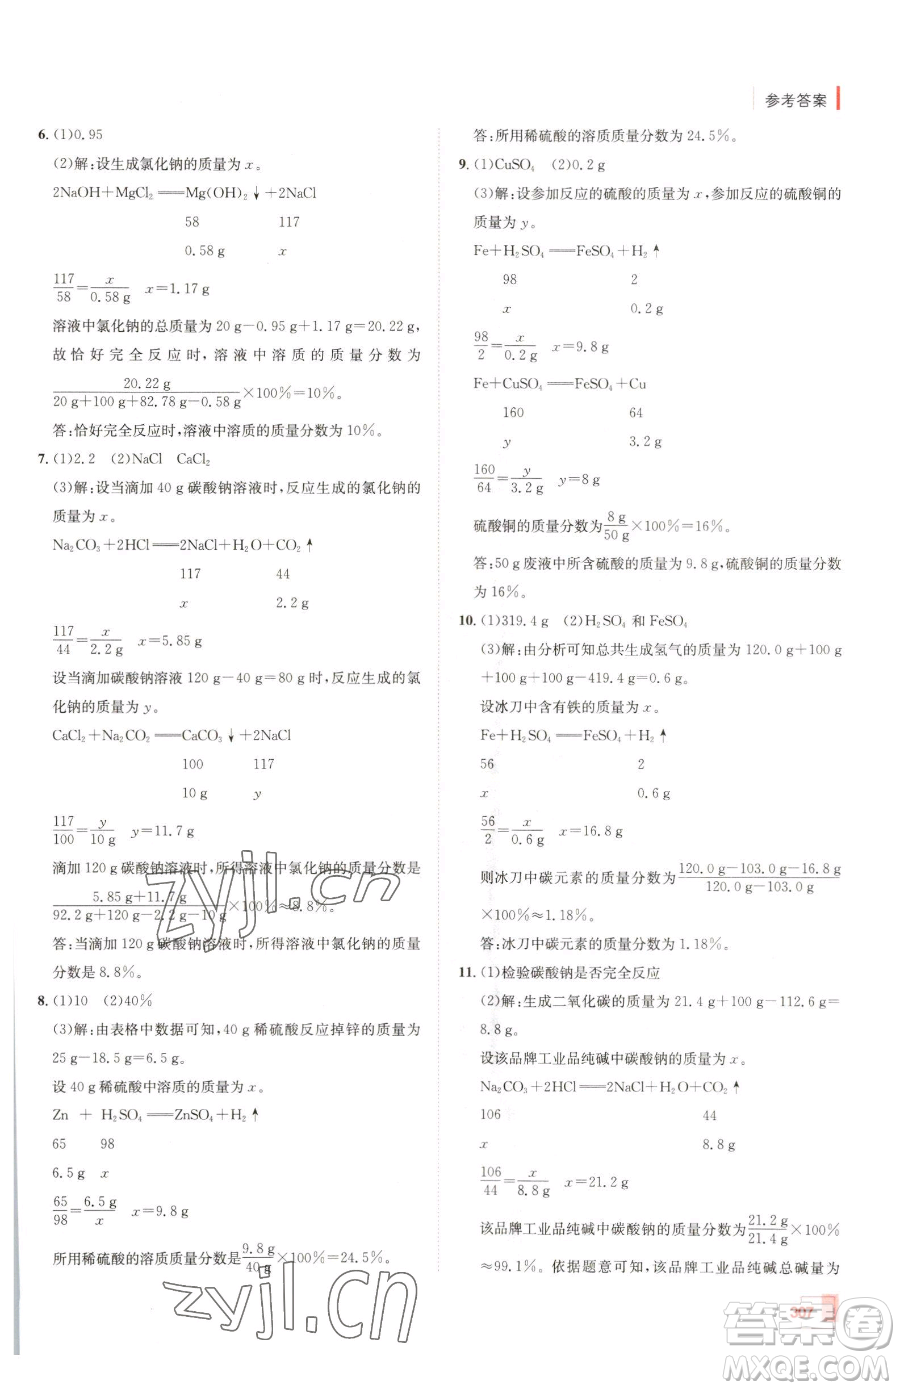 参考答案
6. (1)0.95
(2)解:设生成氯化钠的质量为 x。
2NaOH+MgCl₂══Mg(OH)₂↓+2NaCl
58 117
0.58 g x
117/58=x/0.58 g x=1.17 g
溶液中氯化钠的总质量为 20 g-0.95 g+1.17 g=20.22 g,
故恰好完全反应时,溶液中溶质的质量分数为
20.22 g/(20 g+100 g+82.78 g-0.58 g)×100%=10%。
答:恰好完全反应时,溶液中溶质的质量分数为 10%。
7. (1)2.2 (2)NaCl CaCl₂
(3)解:设当滴加 40 g 碳酸钠溶液时,反应生成的氯化钠的
质量为 x。
Na₂CO₃+2HCl══2NaCl+H₂O+CO₂↑
117 44
x 2.2 g
117/44=x/2.2 g x=5.85 g
设当滴加碳酸钠溶液 120 g-40 g=80 g 时,反应生成的氯
化钠的质量为 y。
CaCl₂+Na₂CO₂══CaCO₃↓+2NaCl
100 117
10 g y
117/100=y/10 g y=11.7 g
滴加 120 g 碳酸钠溶液时,所得溶液中氯化钠的质量分数是
(5.85 g+11.7 g)/(92.2 g+120 g-2.2 g-10 g)×100%≈8.8%。
答:当滴加 120 g 碳酸钠溶液时,所得溶液中氯化钠的质量
分数是 8.8%。
8. (1)10 (2)40%
(3)解:由表格中数据可知,40 g 稀硫酸反应掉锌的质量为
25 g-18.5 g=6.5 g。
设 40 g 稀硫酸中溶质的质量为 x。
Zn + H₂SO₄══ZnSO₄+H₂↑
65 98
6.5 g x
65/98=6.5 g/x x=9.8 g
所用稀硫酸的溶质质量分数是9.8 g/40 g×100%=24.5%。
答:所用稀硫酸的溶质质量分数为 24.5%。
9. (1)CuSO₄ (2)0.2 g
(3)解:设参加反应的硫酸的质量为 x,参加反应的硫酸铜的
质量为 y。
Fe+H₂SO₄══FeSO₄+H₂↑
98 2
x 0.2 g
98/2=x/0.2 g x=9.8 g
Fe+CuSO₄══FeSO₄+Cu
160 64
y 3.2 g
160/64=y/3.2 g y=8 g
硫酸铜的质量分数为8 g/50 g×100%=16%。
答:50 g 废液中所含硫酸的质量为 9.8 g,硫酸铜的质量分数
为 16%。
10. (1)319.4 g (2)H₂SO₄ 和 FeSO₄
(3)解:由分析可知总共生成氢气的质量为 120.0 g+100 g
+100 g+100 g-419.4 g=0.6 g。
设冰刀中含有铁的质量为 x。
Fe+H₂SO₄══FeSO₄+H₂↑
56 2
x 0.6 g
56/2=x/0.6 g x=16.8 g
则冰刀中碳元素的质量分数为(120.0 g-103.0 g-16.8 g)/(120.0 g-103.0 g)
×100%≈1.18%。
答:冰刀中碳元素的质量分数为 1.18%。
11. (1)检验碳酸钠是否完全反应
(2)解:生成二氧化碳的质量为 21.4 g+100 g-112.6 g=
8.8 g。
设该品牌工业品纯碱中碳酸钠的质量为 x。
Na₂CO₃+2HCl══2NaCl+H₂O+CO₂↑
106 44
x 8.8 g
106/44=x/8.8 g x=21.2 g
该品牌工业品纯碱中碳酸钠的质量分数为21.2 g/21.4 g×100%
≈99.1%。依据题意可知,该品牌工业品纯碱总碱量为
307
zyjl.cn
zyjl.cn
答案圈
MXQE.COM